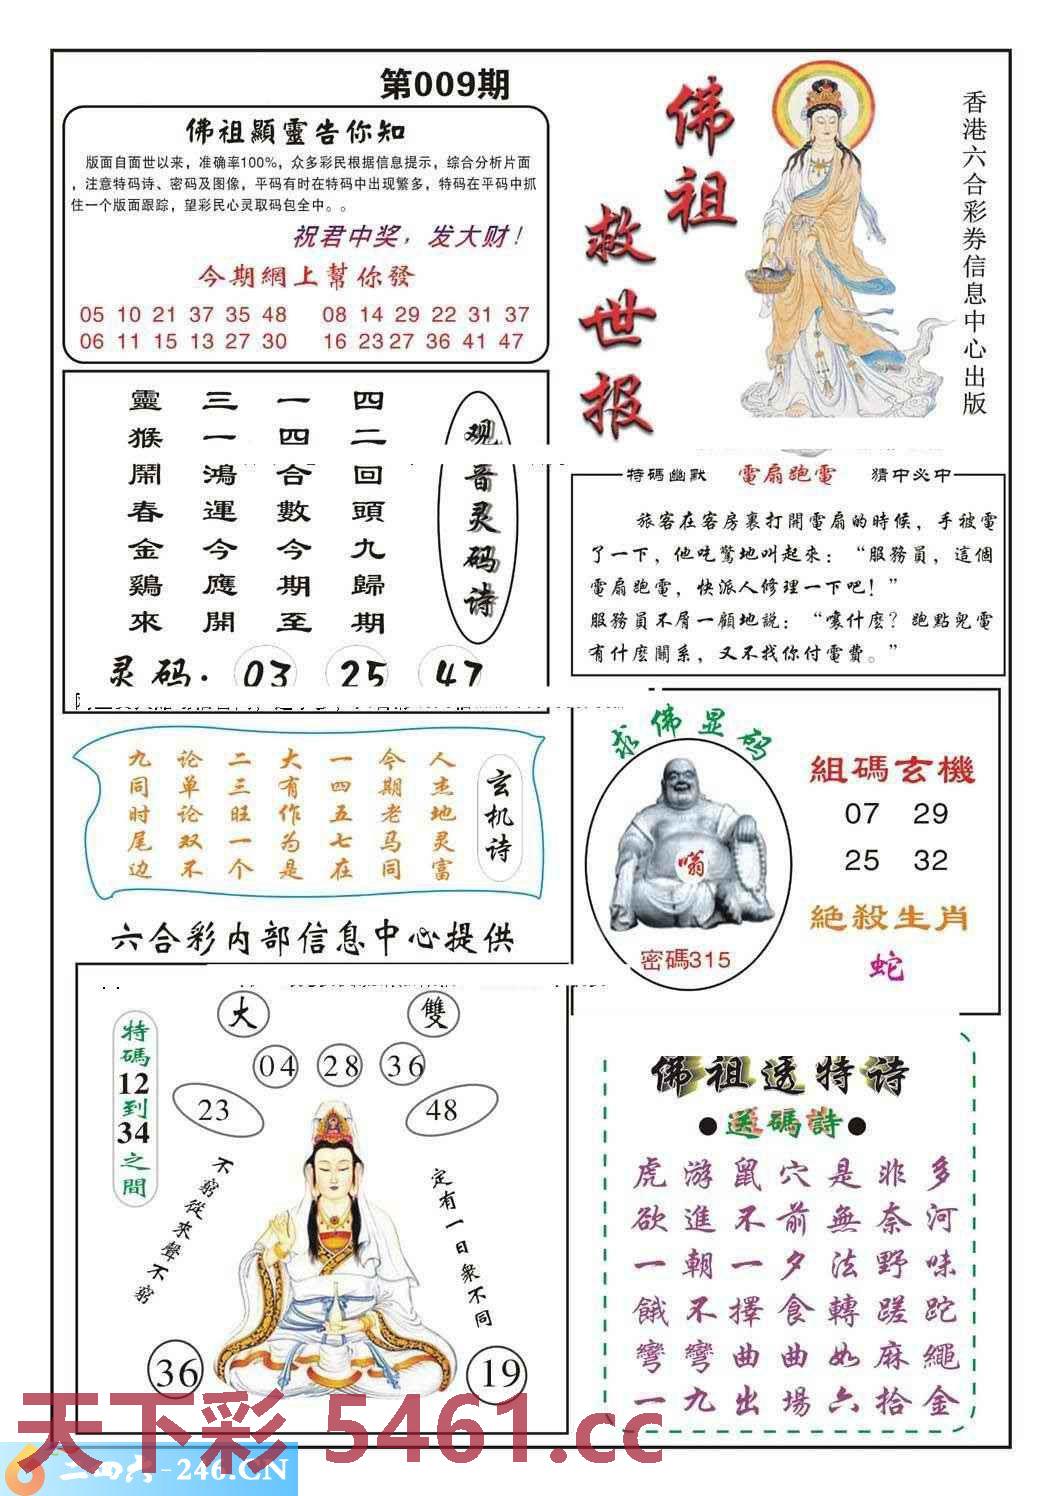 第009期
佛祖顯靈告你知
版面自面世以来，准确率100%，众多彩民根据信息提示，综合分析片面
，注意特码诗、密码及图像，平码有时在特码中出现繁多，特码在平码中抓
住一个版面跟踪，望彩民心灵取码包全中。。
祝君中奖，发大财！
今期網上幫你發
05 10 21 37 35 48 08 14 29 22 31 37
06 11 15 13 27 30 16 23 27 36 41 47
佛祖
救世报
香港六合彩券信息中心出版
靈猴鬧春金鷄來
三一鴻運今應開
一四合數今期至
四二回頭九歸期
观音灵码诗
灵码. 03 25 47
特码幽默 電扇跑電 猜中必中
旅客在客房裏打開電扇的時候，手被電
了一下，他吃驚地叫起來：“服務員，這個
電扇跑電，快派人修理一下吧！”
服務員不屑一顧地説：“嚷什麽？跑點兒電
有什麽關系，又不找你付電費。”
玄机诗
人杰地灵富
今期老马同
一四五七在
大有作为是
二三旺一个
论单论双不
九同时尾边
求佛显码
嗡
密碼315
組碼玄機
07 29
25 32
絕殺生肖
蛇
六合彩内部信息中心提供
大 雙
04 28 36
23 48
特碼12到34之間
不窮從來聲不窮
定有一日衆不同
36 19
佛祖透特诗
●送碼詩●
虎游鼠穴是非多
欲進不前無奈河
一朝一夕法野味
餓不擇食轉蹉跎
彎彎曲曲如麻繩
一九出場六拾金
天下彩 5461.cc
二四六-246.CN